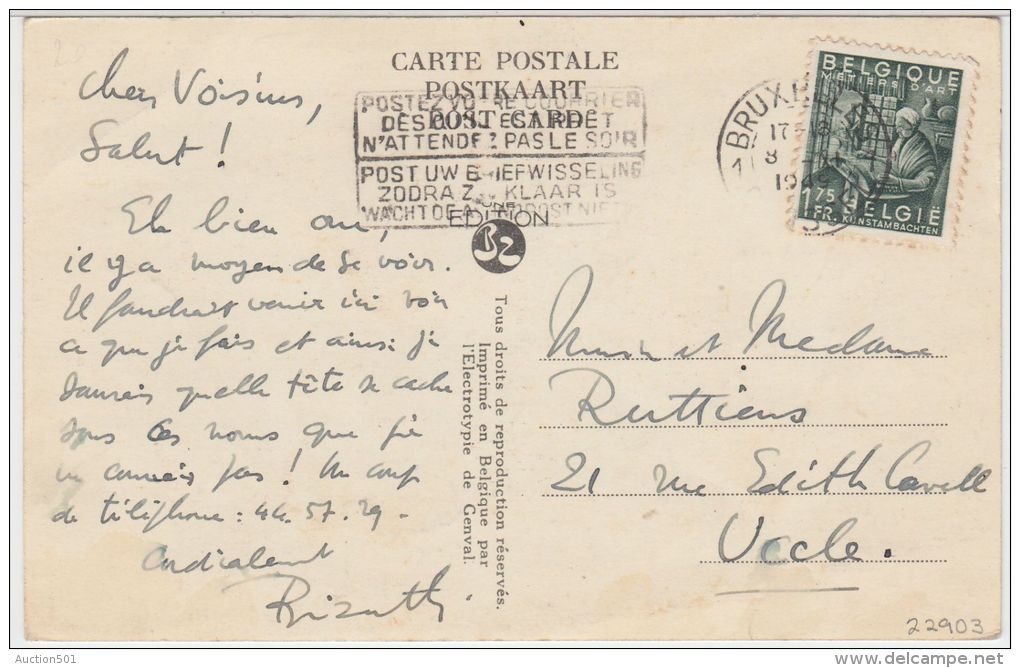 CARTE POSTALE
POSTKAART
POST CARD
POSTEZ VOTRE COURRIER
DES QU'IL EST PRÊT
N'ATTENDEZ PAS LE SOIR
POST UW BRIEFWISSELING
ZODRA ZE KLAAR IS
WACHT DE AVONDPOST NIET
EDITION
BRUXE
17
8
194
BELGIQUE
METIERS D'ART
1,75
FR.
BELGIË
KUNSTAMBACHTEN
Chers Voisins,
Salut !
Eh bien oui,
il y a moyen de se voir.
Il faudrait venir ici voir
ce que je fais et ainsi je
saurais quelle tête se cache
sous ces noms que je
ne connais pas ! Un coup
de téléphone : 44.57.29.
Cordialement
Tous droits de reproduction réservés.
Imprimé en Belgique par
l'Electrotypie de Genval.
et Madame
Ruttiens
21 rue Edith Cavell
Uccle.
22903
Auction501
delcampe.net